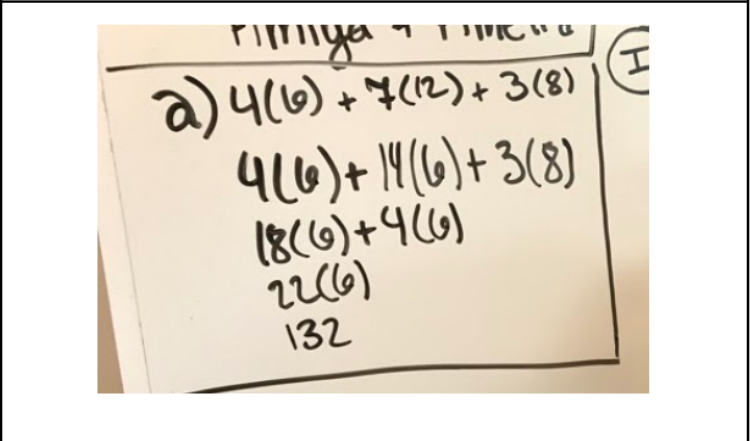 a) 4(6) + 7(12) + 3(8)
I
4(6) + 14(6) + 3(8)
18(6) + 4(6)
22(6)
132